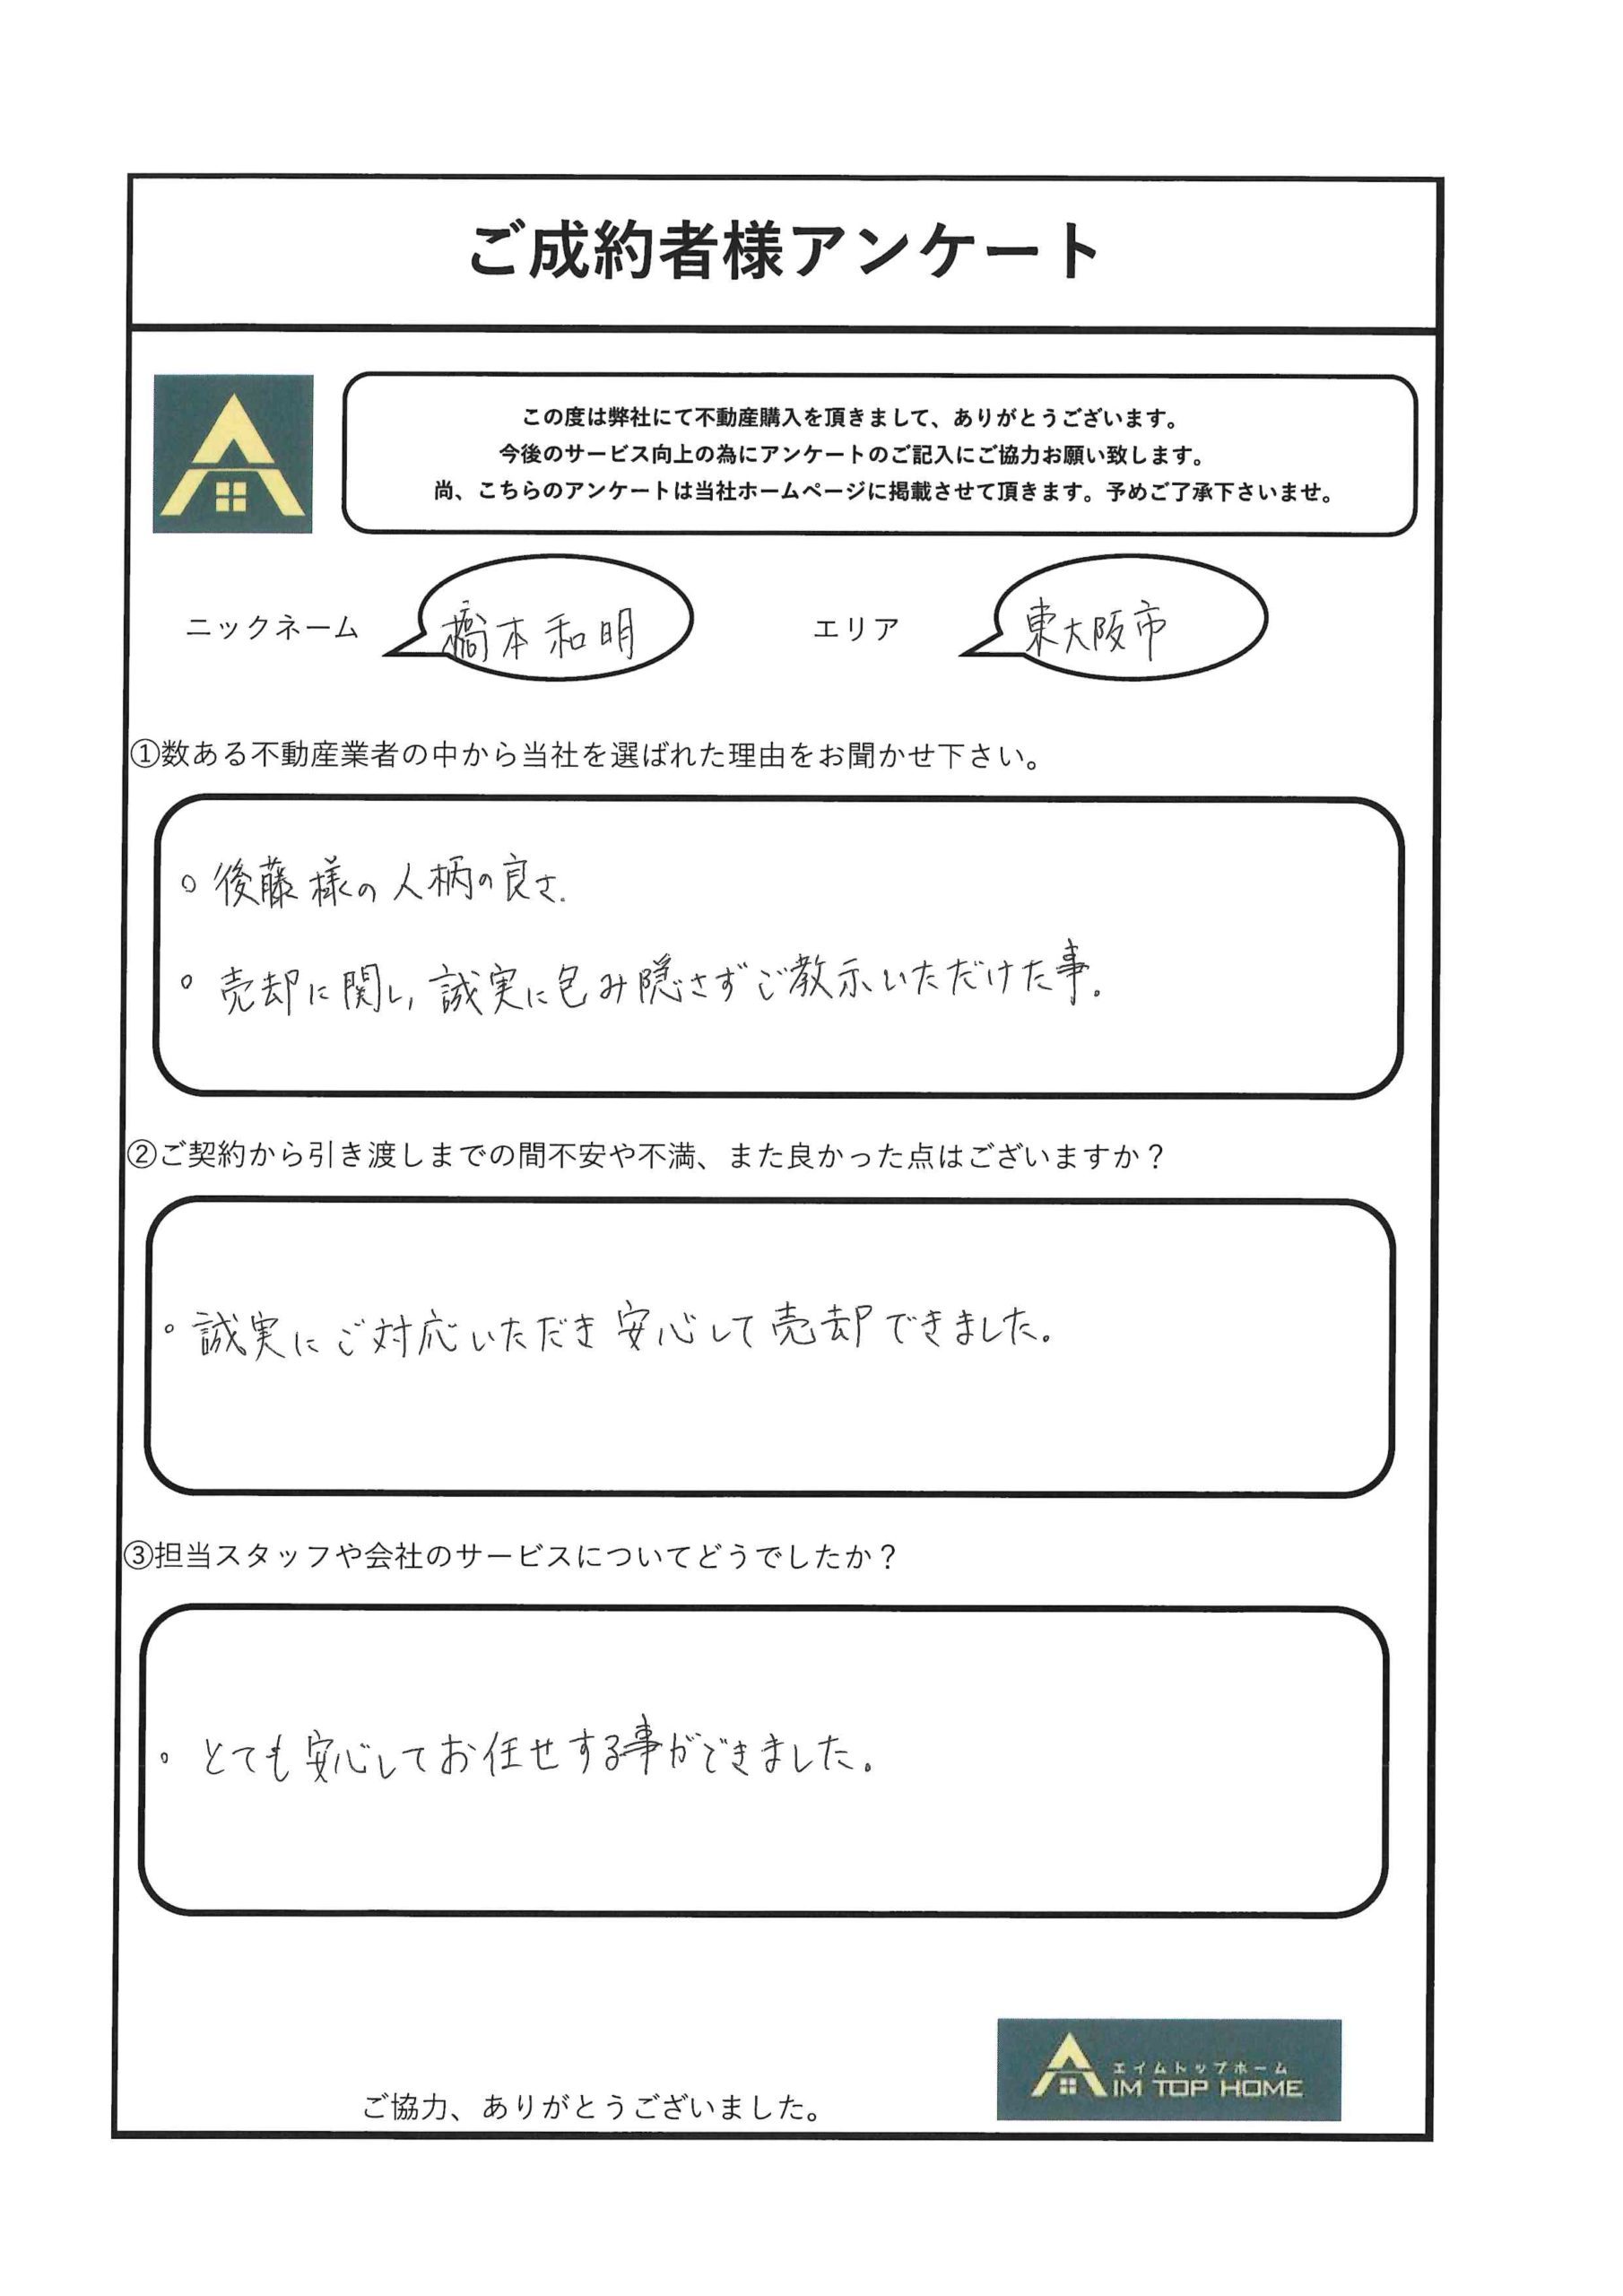 ご成約者様アンケート
この度は弊社にて不動産購入を頂きまして、ありがとうございます。
今後のサービス向上の為にアンケートのご記入にご協力お願い致します。
尚、こちらのアンケートは当社ホームページに掲載させて頂きます。予めご了承下さいませ。
ニックネーム 橋本和明 エリア 東大阪市
①数ある不動産業者の中から当社を選ばれた理由をお聞かせ下さい。
○後藤様の人柄の良さ.
○売却に関し,誠実に包み隠さずご教示いただけた事。
②ご契約から引き渡しまでの間不安や不満、また良かった点はございますか？
○誠実にご対応いただき安心して売却できました。
③担当スタッフや会社のサービスについてどうでしたか？
○とても安心してお任せする事ができました。
エイムトップホーム
AIM TOP HOME
ご協力、ありがとうございました。